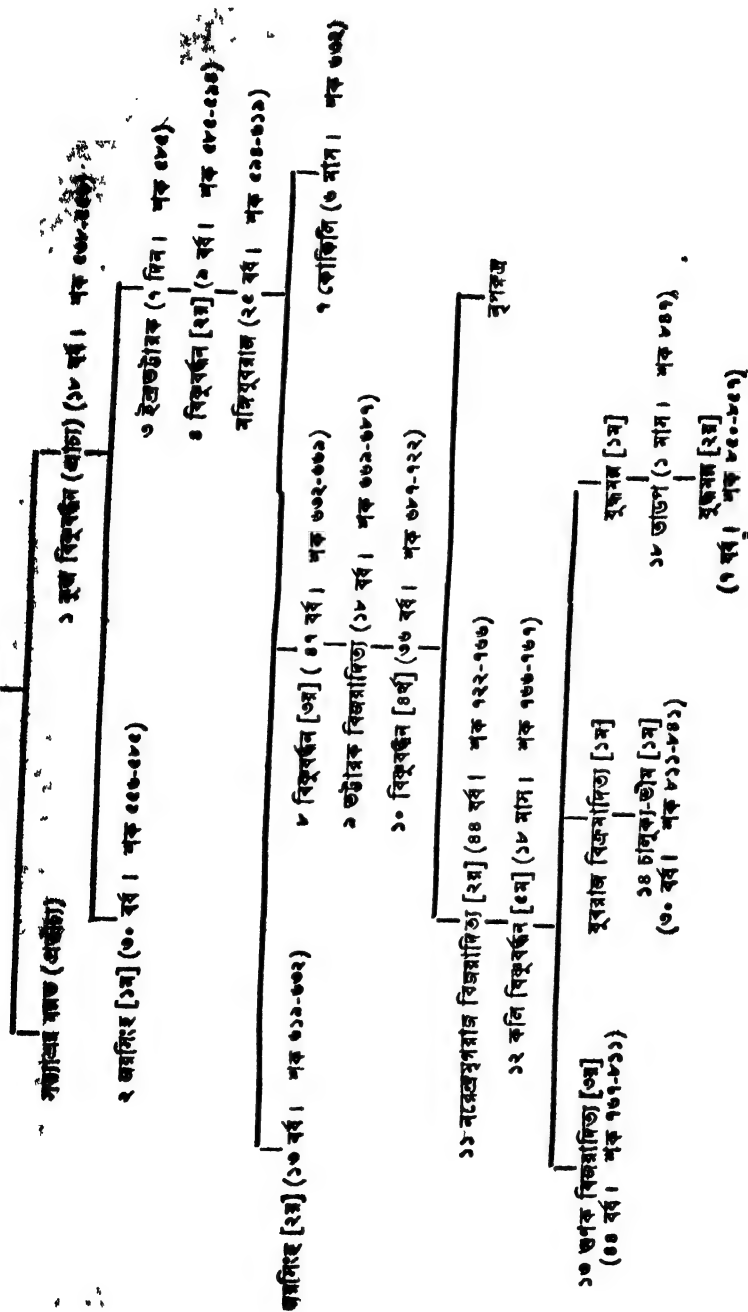 সত্যাশ্রয় বল্লভ (প্রতীচ্য)
১ কুব্জ বিষ্ণুবর্দ্ধন (প্রাচ্য) (১৮ বর্ষ। শক
২ জয়সিংহ [১ম] (৩০ বর্ষ। শক ৫৫৬-৫৮৫)
৩ ইন্দ্রভট্টারক (৭ দিন। শক ৫৮৫)
৪ বিষ্ণুবর্দ্ধন [২য়] (৯ বর্ষ। শক ৫৮৫-৫৯৪)
মঙ্গিযুবরাজ (২৫ বর্ষ। শক ৫৯৪-৬১৯)
জয়সিংহ [২য়] (১৩ বর্ষ। শক ৬১৯-৬৩২)
৮ বিষ্ণুবর্দ্ধন [৩য়] (৪৭ বর্ষ। শক ৬৩২-৬৬৯)
৭ কোকিলি (৬ মাস। শক ৬৩২)
৯ ভট্টারক বিজয়াদিত্য (১৮ বর্ষ। শক ৬৬৯-৬৮৭)
১০ বিষ্ণুবর্দ্ধন [৪র্থ] (৩৬ বর্ষ। শক ৬৮৭-৭২২)
১১ নরেন্দ্রমৃগরাজ বিজয়াদিত্য [২য়] (৪৪ বর্ষ। শক ৭২২-৭৬৬)
নৃপরুদ্র
১২ কলি বিষ্ণুবর্দ্ধন [৫ম] (১৮ মাস। শক ৭৬৬-৭৬৭)
১৩ গুণক বিজয়াদিত্য [৩য়]
(৪৪ বর্ষ। শক ৭৬৭-৮১১)
যুবরাজ বিক্রমাদিত্য [১ম]
১৪ চালুক্য-ভীম [১ম]
(৩০ বর্ষ। শক ৮১১-৮৪১)
যুদ্ধমল্ল [১ম]
১৮ তাড়প (১ মাস। শক ৮৪৭)
যুদ্ধমল্ল [২য়]
(৭ বর্ষ। শক ৮৫০-৮৫৭)